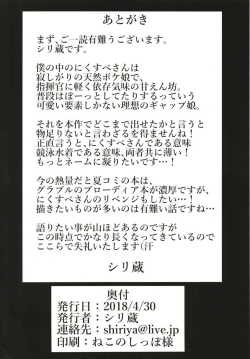 あとがき
まず、ご一読有難うございます。
シリ蔵です。
僕の中のにくすべさんは
寂しがりの天然ボケ娘で、
指揮官に軽く依存気味の甘えん坊。
普段はぼーっとしてたりするっていう
可愛い要素しかない理想のギャップ娘。
それを本作でどこまで出せたかと言うと
物足りないと言わざるを得ませんね！
正直言うと、にくすべさんである意味
競泳水着である意味、両者共に薄い！
もっとネームに凝りたいです…！
今の熱量だと夏コミの本は、
グラブルのブローディア本が濃厚ですが、
にくすべさんのリベンジもしたい…！
描きたいものが多いのは有難い話ですね…
語りたい事が山ほどあるのですが
この時点でかなり長くなってきているので
ここらで失礼いたします(汗
シリ蔵
奥付
発行日：2018/4/30
発行者：シリ蔵
連絡先：shiriya@live.jp
印刷：ねこのしっぽ様